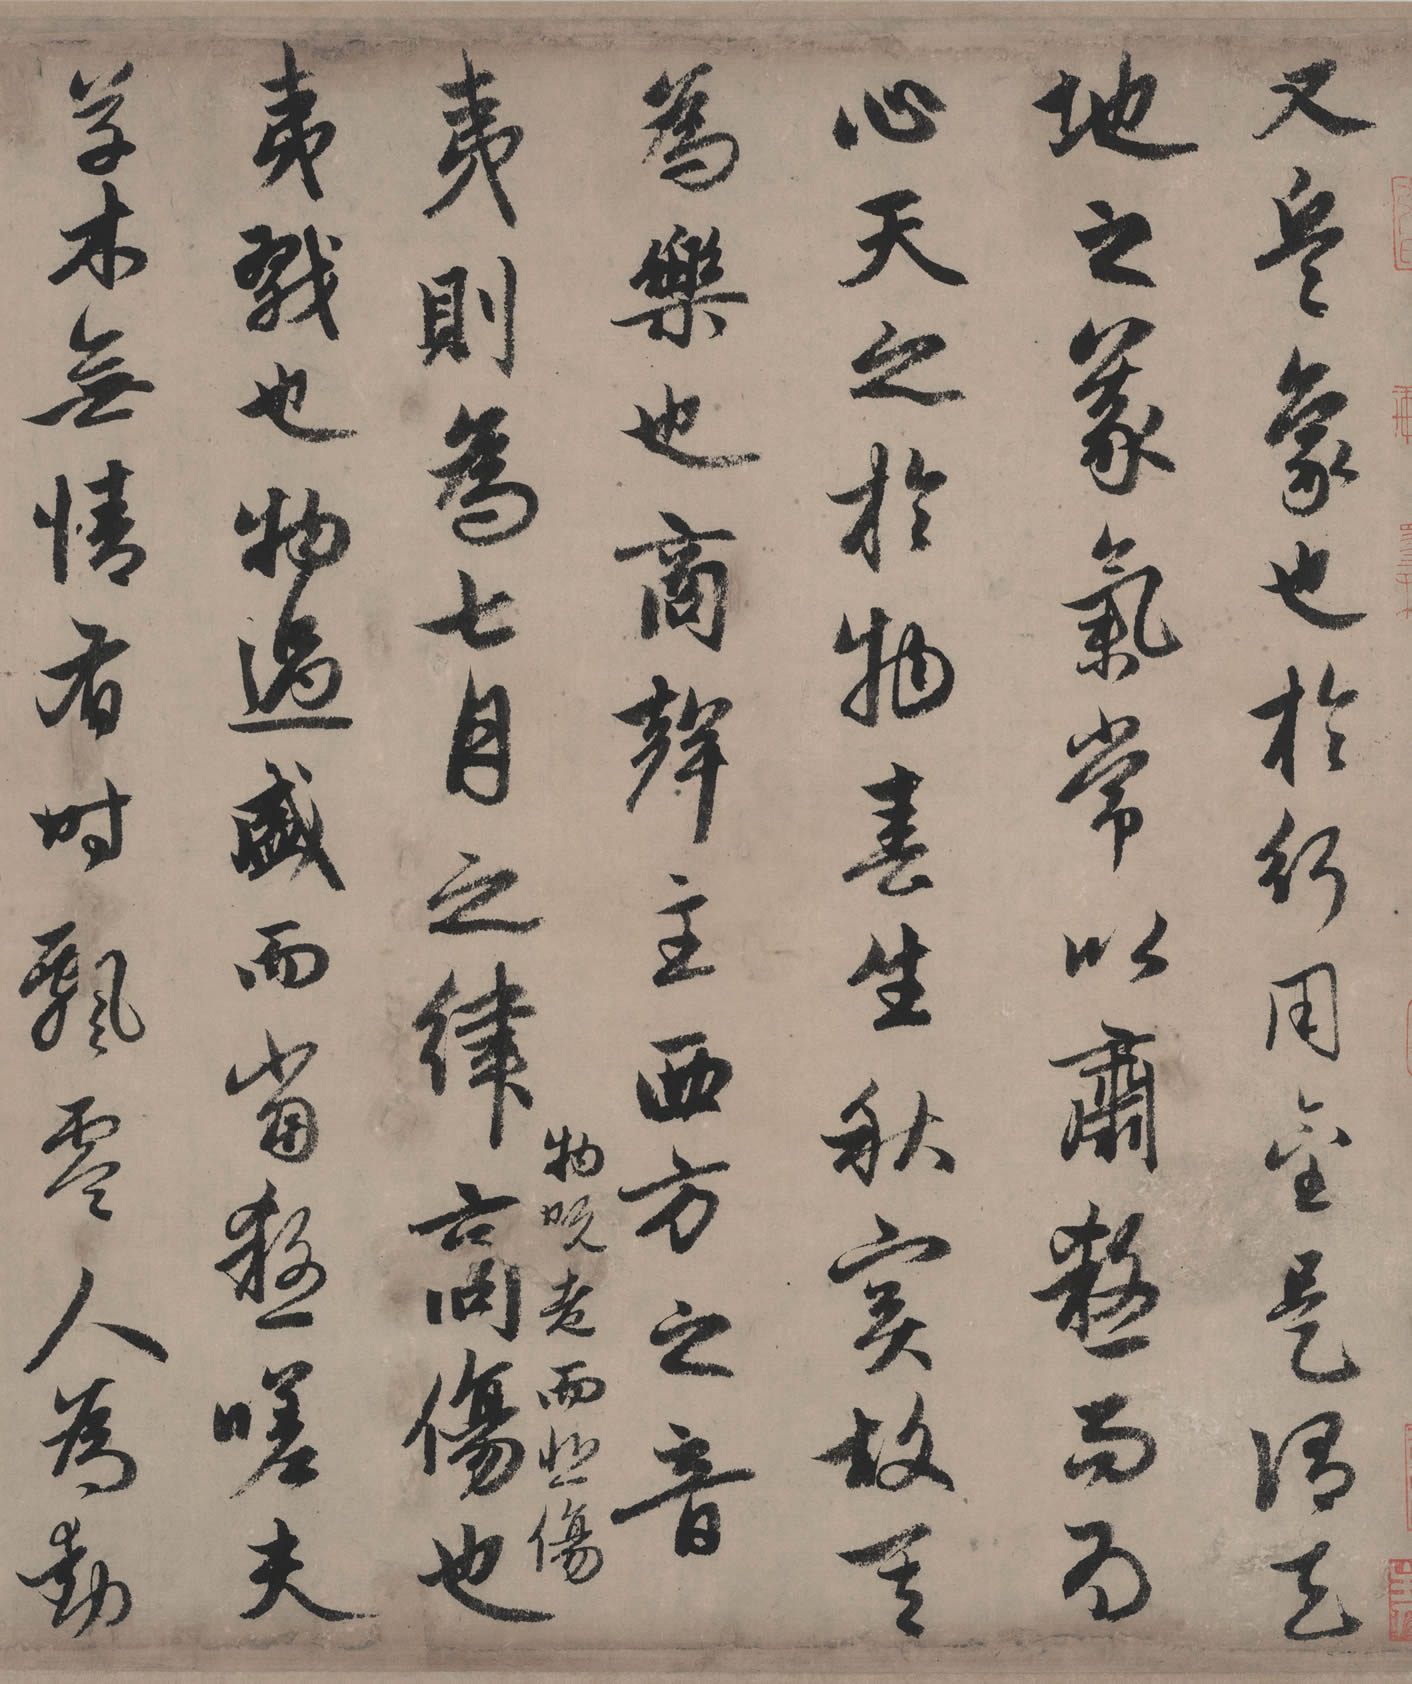 又兵象也於行用金是謂天
地之義氣常以肅殺而為
心天之於物春生秋實故其
為樂也商聲主西方之音
夷則為七月之律商傷也
物既老而悲傷
夷戮也物過盛而當殺嗟夫
草木無情有時飄零人為動